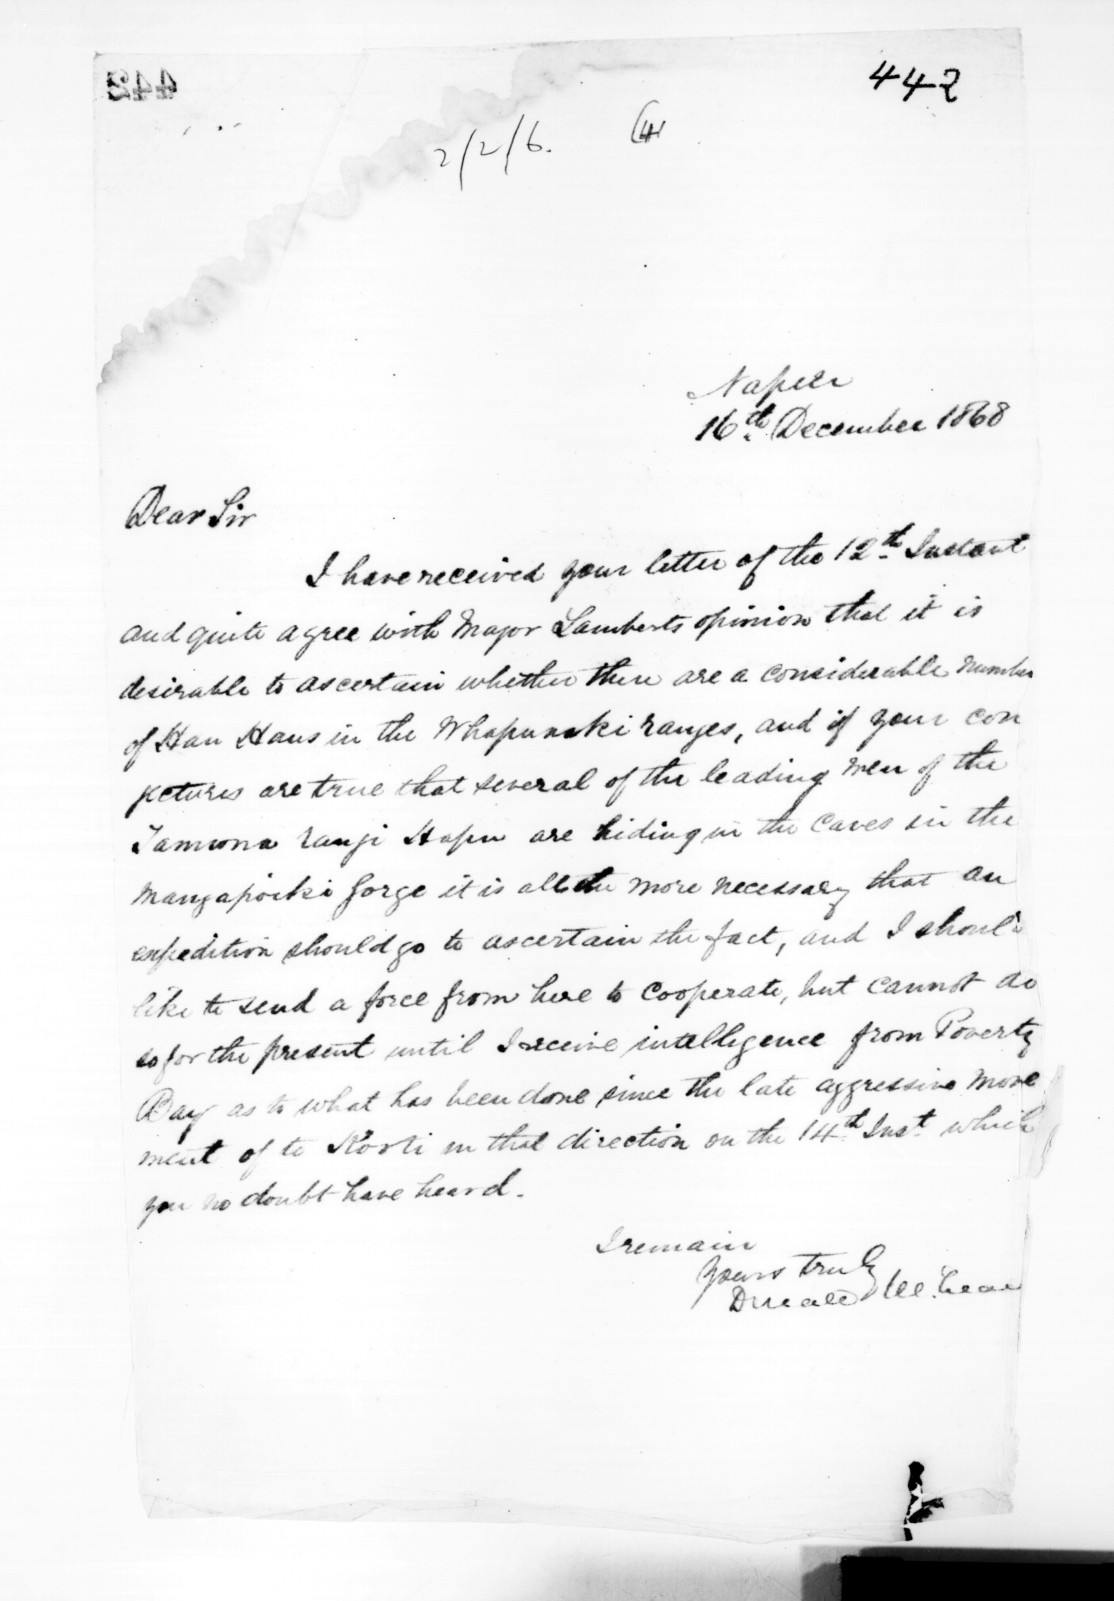 442
2/2/6.
Napier
16th December 1868
Dear Sir
I have received your letter of the 12th Instant
and quite agree with Major Lamberts opinion that it is
desirable to ascertain whether there are a considerable number
of Hau Haus in the ranges, and if your con
jectures are true that several of the leading men of the
rangi Hapu are hiding in the Caves in the
Gorge it is all the more necessary that an
expedition should go to ascertain the fact, and I should
like to send a force from here to cooperate, but cannot do
so for the present until I receive intelligence from Poverty
Bay as to what has been done since the late aggressive move
ment of te Kooti in that direction on the 14th Inst. which
you no doubt have heard.
I remain
Yours truly
Donald McLean